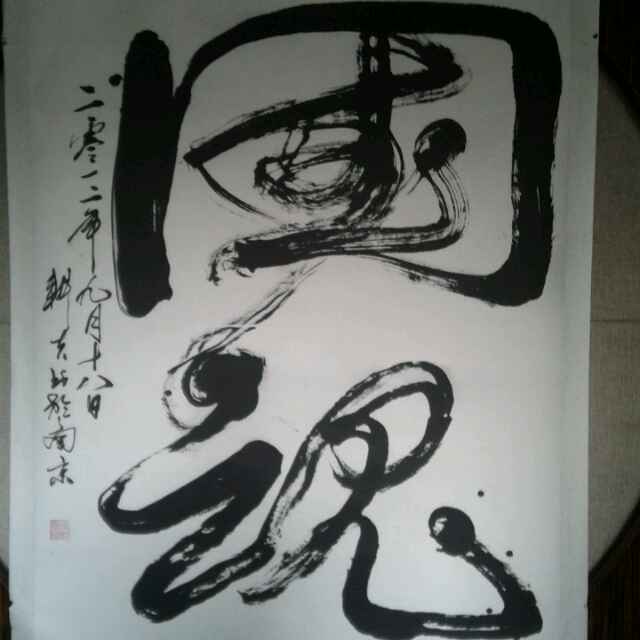 國魂
二零一二年九月十八日
书於南京